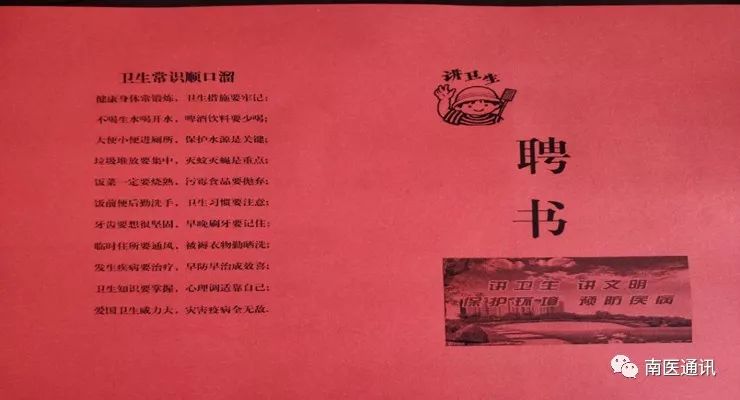 卫生常识顺口溜
健康身体常锻炼，卫生措施要牢记；
不喝生水喝开水，啤酒饮料要少喝；
大便小便进厕所，保护水源是关键；
垃圾堆放要集中，灭蚊灭蝇是重点；
饭菜一定要烧熟，污霉食品要抛弃；
饭前便后勤洗手，卫生习惯要注意；
牙齿要想很坚固，早晚刷牙要记住；
临时住所要通风，被褥衣物勤晒洗；
发生疾病要治疗，早防早治成效喜；
卫生知识要掌握，心理调适靠自己；
爱国卫生威力大，灾害疫病全无敌.
讲卫生
聘
书
讲卫生 讲文明
保护环境 预防疾病
南医通讯